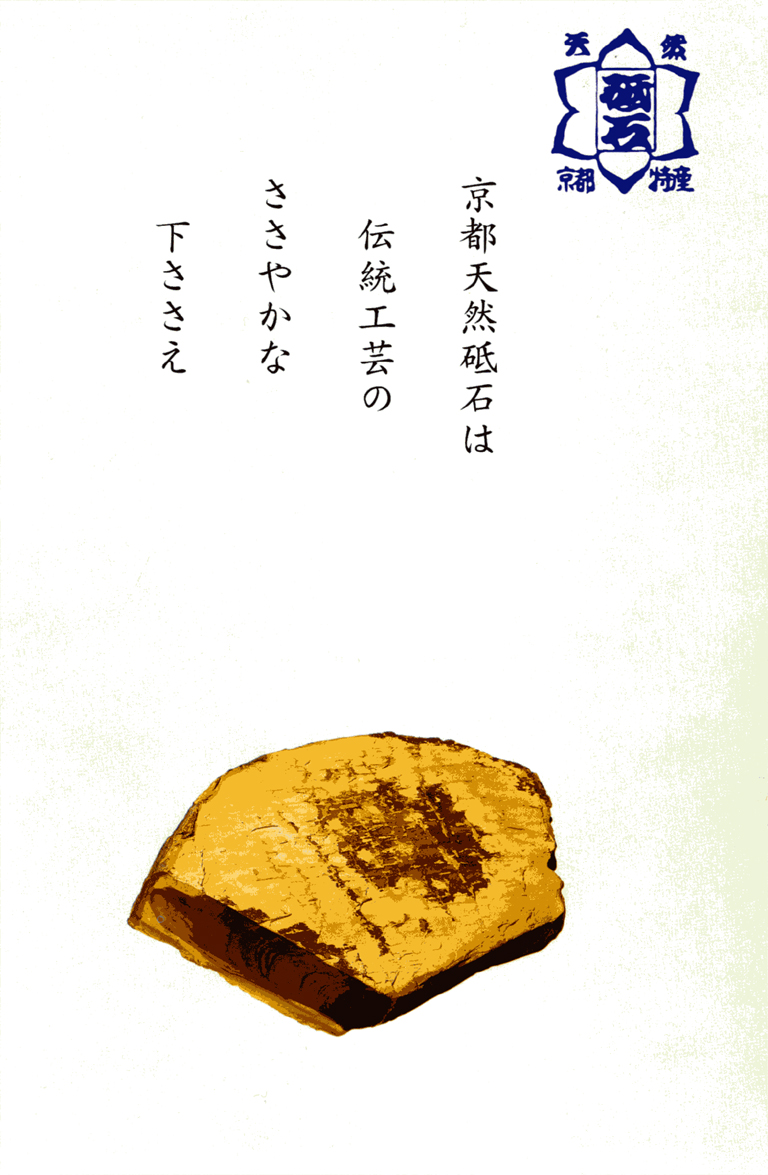 天然
砥石
京都 特産
京都天然砥石は
伝統工芸の
ささやかな
下ささえ